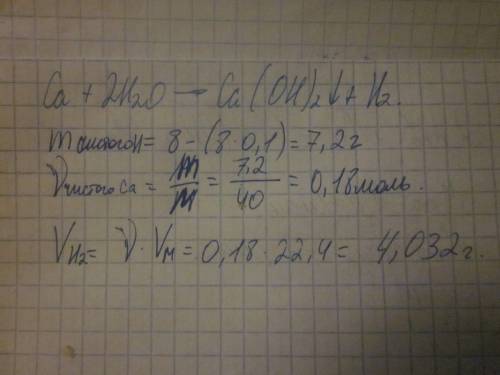 Ca + 2H2O → Ca(OH)2↓ + H2.
m чистого = 8 - (8·0,1) = 7,2 г
ν чистого Ca = m/M = 7,2/40 = 0,18 моль.
V H2 = ν · Vм = 0,18 · 22,4 = 4,032 г.